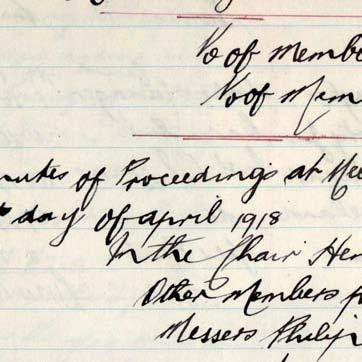 No of Membe
No of Mem
nutes of Proceedings at Mee
day of April 1918
In the Chair Hen
Other Members p
Messers Philip